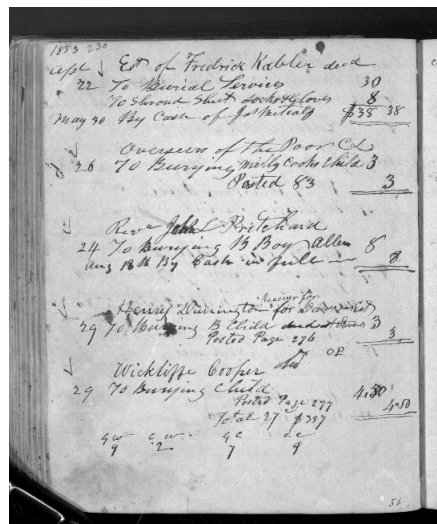 1853 230
Apl Est of Fredrick Kabler decd
22 To Burial Services 30
To Shroud Shirt Socks & Gloves 8
May 30 By Cash of Js Metcalf $38 38
Overseers of the Poor
26 To Burying Milly Cooks Child 3
Posted 83 3
Revd John Pritchard
24 To Burying B Boy Allen 8
Aug 18th By Cash in full 8
Henry Dunington for
29 To Burying B Child 3
Posted Page 276 3
Wickliffe Cooper
29 To Burying Child 4.50
Posted Page 277 4.50
Total 27 $397
G W C W G C C C
9 2 7 9